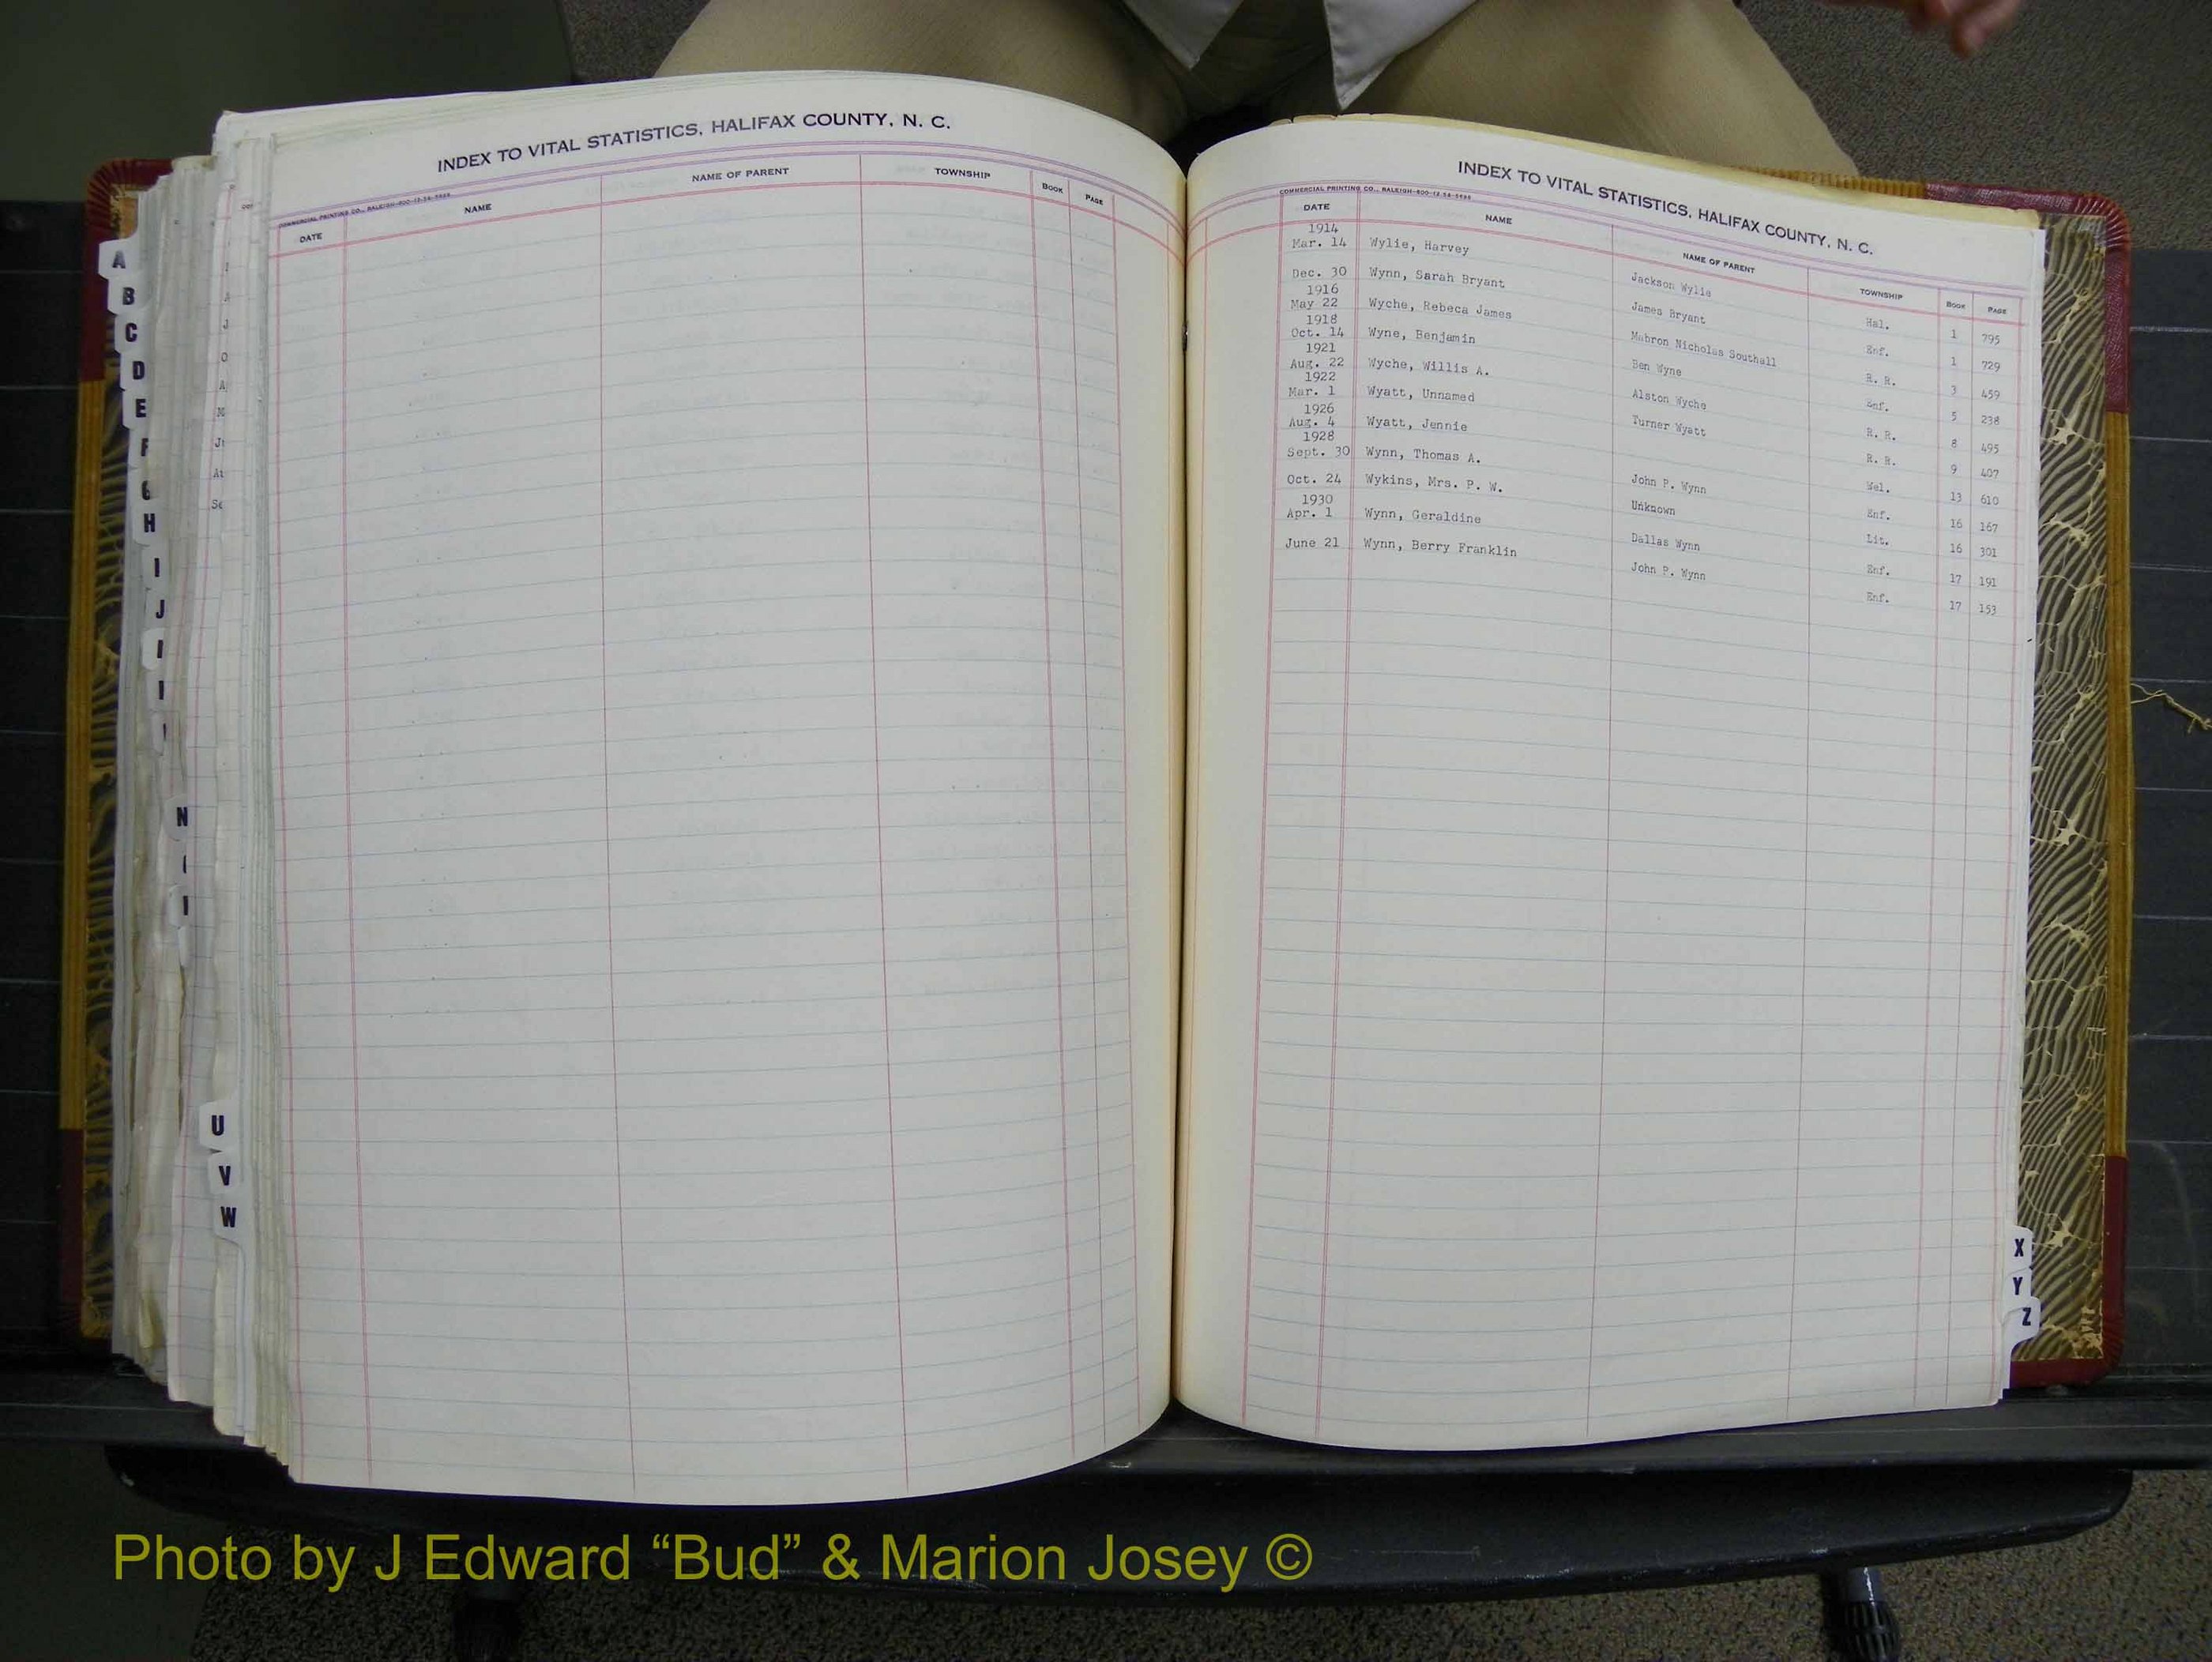 INDEX TO VITAL STATISTICS, HALIFAX COUNTY, N. C.
COMMERCIAL PRINTING CO., RALEIGH
DATE NAME NAME OF PARENT TOWNSHIP BOOK PAGE
A
B
C
D
E
F
G
H
I
J
N
U
V
W
INDEX TO VITAL STATISTICS, HALIFAX COUNTY, N. C.
COMMERCIAL PRINTING CO., RALEIGH
DATE NAME NAME OF PARENT TOWNSHIP BOOK PAGE
1914
Mar. 14 Wylie, Harvey Jackson Wylie Hal. 1 795
Dec. 30 Wynn, Sarah Bryant James Bryant Enf. 1 729
1916
May 22 Wyche, Rebeca James Mabron Nicholas Southall R. R. 3 459
1918
Oct. 14 Wyne, Benjamin Ben Wyne Enf. 5 238
1921
Aug. 22 Wyche, Willis A. Alston Wyche R. R. 8 495
1922
Mar. 1 Wyatt, Unnamed Turner Wyatt R. R. 9 407
1926
Aug. 4 Wyatt, Jennie Wel. 13 610
1928
Sept. 30 Wynn, Thomas A. John P. Wynn Enf. 16 167
Oct. 24 Wykins, Mrs. P. W. Unknown Lit. 16 301
1930
Apr. 1 Wynn, Geraldine Dallas Wynn Enf. 17 191
June 21 Wynn, Berry Franklin John P. Wynn Enf. 17 153
X
Y
Z
Photo by J Edward “Bud” & Marion Josey ©